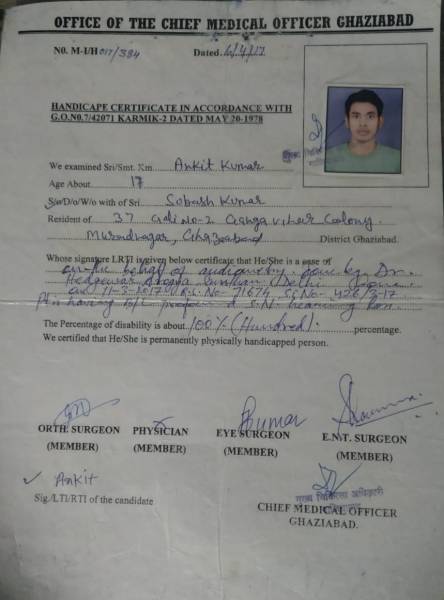 OFFICE OF THE CHIEF MEDICAL OFFICER GHAZIABAD
N0. M-I/H 017/384 Dated. 6/4/17
HANDICAPE CERTIFICATE IN ACCORDANCE WITH
G.O.N0.7/42071 KARMIK-2 DATED MAY 20-1978
मुख्य चिकित्सा
We examined Sri/Smt. Km. Ankit Kumar
Age About 17
S/o/D/o/W/o with of Sri Sobash Kumar
Resident of 37 Gali No-2 Ganga Vihar Coolony.
Muradnagar, Ghaziabad District Ghaziabad.
Whose signature LRTI is given below certificate that He/She is a case of
on the behalf of audiometry done by Dr.
Hedgewar Aroga Sansthan Delhi
on 11-3-2017 71674 Sl No- 426/3-17
Pt. having B/L profound S.N. hearing loss.
The Percentage of disability is about 100% (Hundred). percentage.
We certified that He/She is permanently physically handicapped person.
ORTH. SURGEON PHYSICIAN EYE SURGEON E.N.T. SURGEON
(MEMBER) (MEMBER) (MEMBER) (MEMBER)
✓ Ankit
Sig./LTI/RTI of the candidate
मुख्य चिकित्सा अधिकारी
CHIEF MEDICAL OFFICER
GHAZIABAD.